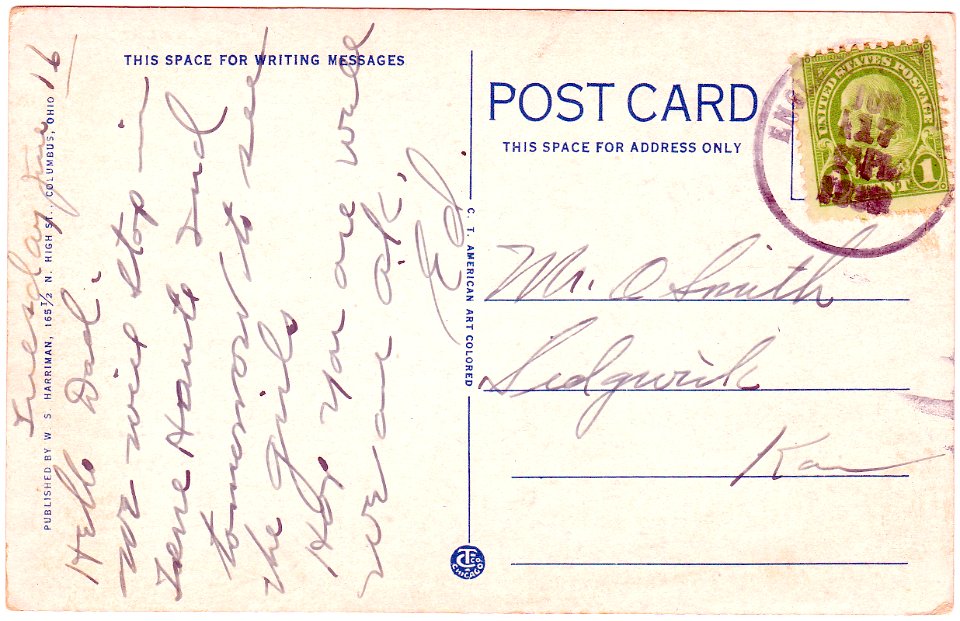 THIS SPACE FOR WRITING MESSAGES
POST CARD
THIS SPACE FOR ADDRESS ONLY
UNITED STATES POSTAGE
1 CENT 1
ENG
JUN
17
Tuesday June 16
Hello Dad.
We will stop in
Terre Haute Ind
tomorrow to see
the girls
Hope you are well
we are o.k.
Ed.
Mr. O Smith
Sedgwick
Kan
PUBLISHED BY W. S. HARRIMAN, 165½ N. HIGH ST., COLUMBUS, OHIO
C. T. AMERICAN ART COLORED
CHICAGO